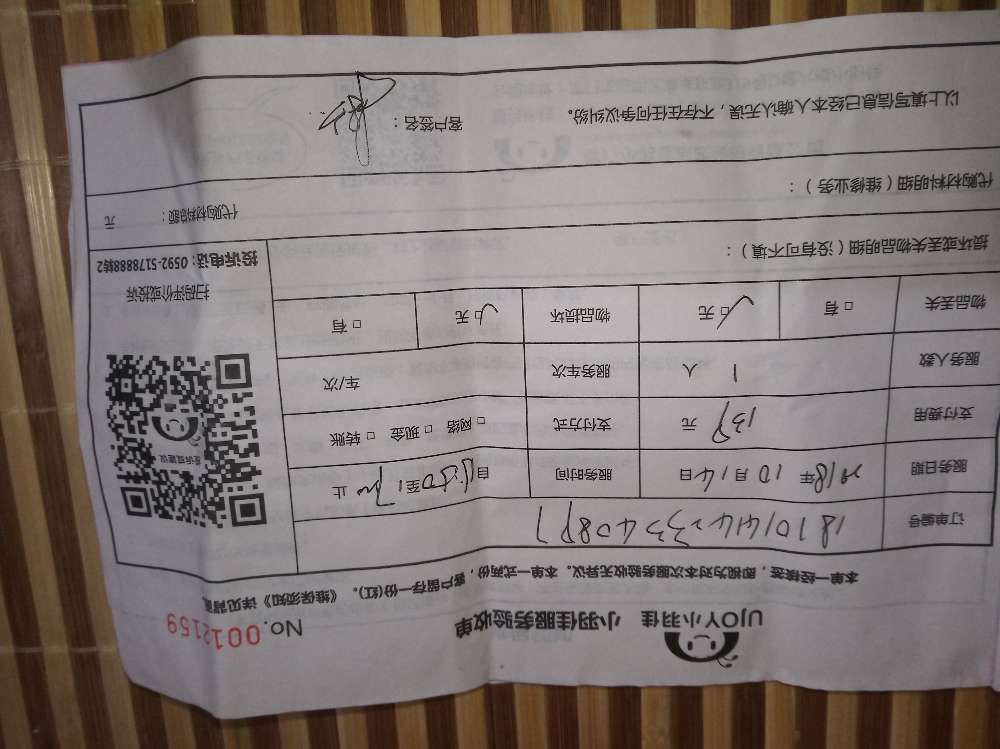 UJOY小羽佳 小羽佳服务验收单 No.0012159
本单一经核签，即视为对本次服务验收无异议。本单一式两份，客户留存一份(红)。《维保须知》详见背面
订单编号 181014142334089
服务日期 2018年10月14日 服务时间 自 至 止
支付费用 139 元 支付方式 □网络 □现金 □转账
服务人数 1 人 服务车次 车/次
物品丢失 □有 □无 物品损坏 □无 □有
投诉或建议
扫码评价或投诉
投诉电话：0592-5178888转2
损坏或丢失物品明细（没有可不填）：
代购材料明细（维修业务）： 代购材料总额： 元
以上填写信息已经本人确认无误，不存在任何争议纠纷。 客户签名：